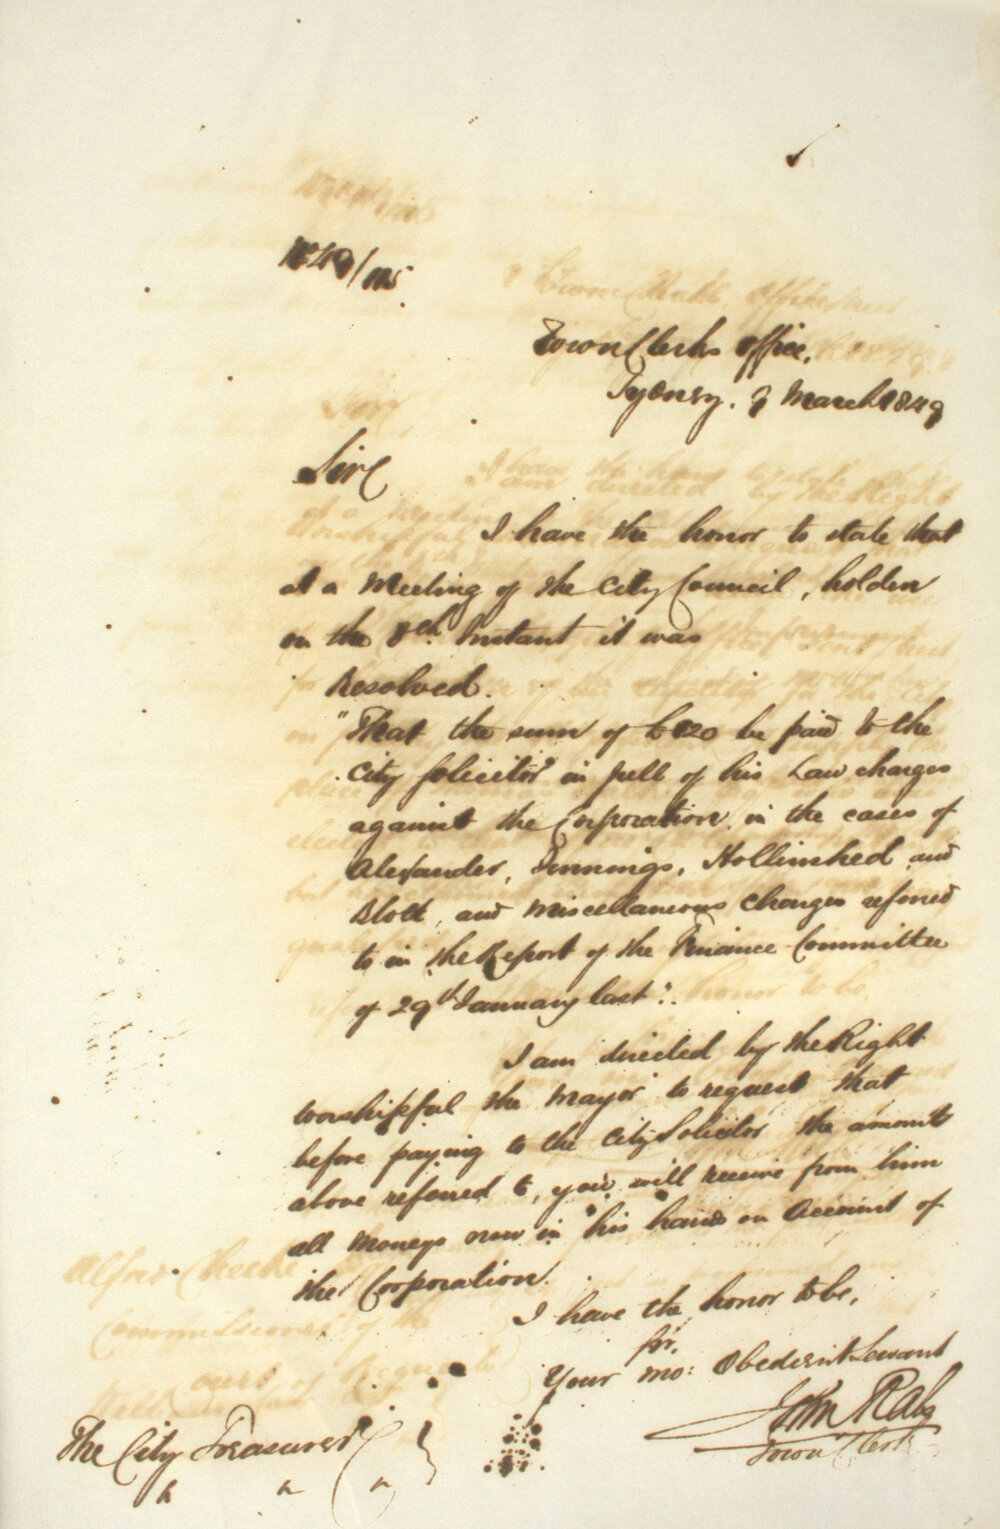 No 49/115
Town Clerks Office,
Sydney. 9 March 1849
Sir
I have the honor to state that
at a Meeting of the City Council, holden
on the 8th Instant it was
Resolved.
"That the sum of £120 be paid to the
City Solicitor in full of his Law charges
against the Corporation in the cases of
Alexander, Jennings, Hollinshed and
Blott, and Miscellaneous Charges referred
to in the Report of the Finance Committee
of 29th January last".
I am directed by the Right
Worshipful the Mayor to request that
before paying to the City Solicitor the amount
above referred to, you will receive from him
all Moneys now in his hands on Account of
the Corporation.
I have the honor to be,
Sir,
Your mo: Obedient Servant
John Rae
Town Clerk
The City Treasurer
" " "